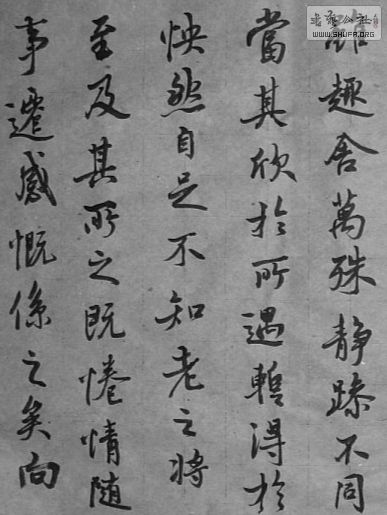 雖趣舍萬殊静躁不同
當其欣於所遇暫得於
怏然自足不知老之將
至及其所之既惓情隨
事遷感慨係之矣向
WWW.SHUFA.ORG